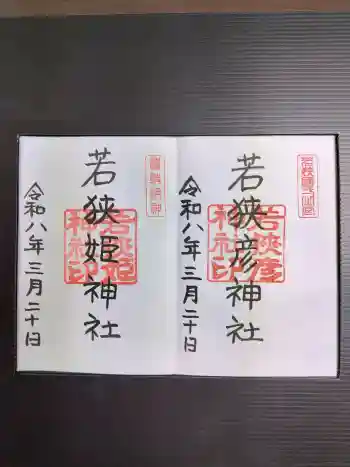 若狭彦神社
若狭彦神社印
令和八年三月二十日
若狭姫神社
若狭姫神社印
令和八年三月二十日